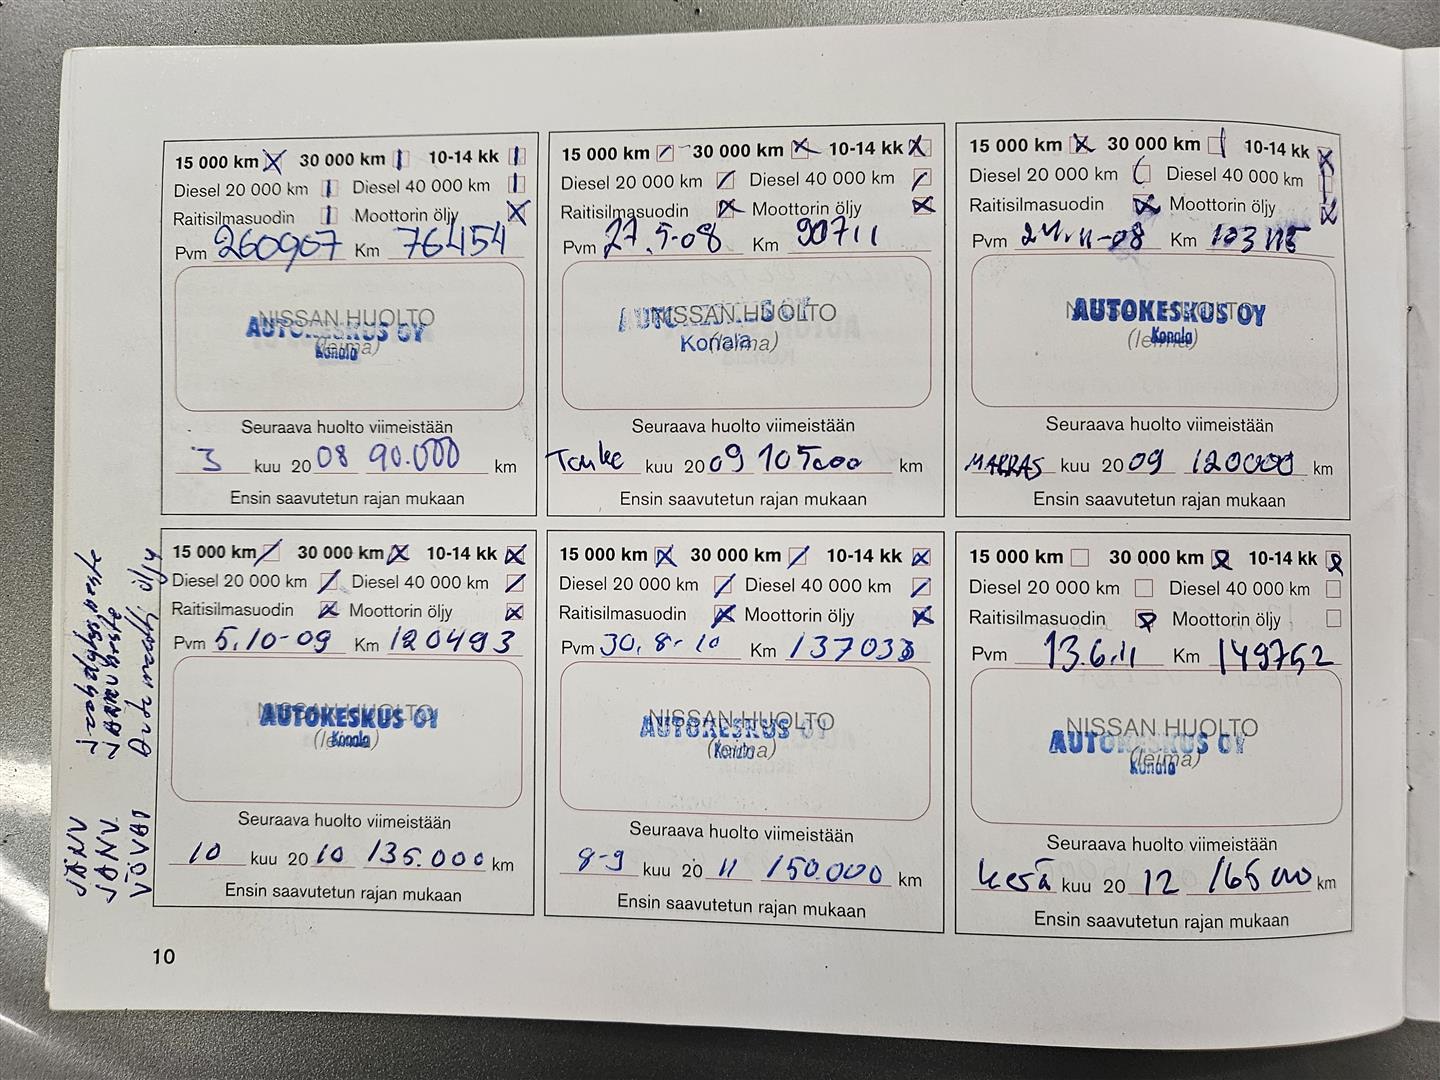 15 000 km 30 000 km 10-14 kk
Diesel 20 000 km Diesel 40 000 km
Raitisilmasuodin Moottorin öljy
Pvm 260907 Km 76454
NISSAN HUOLTO
AUTOKESKUS OY
(leima)
Konala
Seuraava huolto viimeistään
3 kuu 20 08 90.000 km
Ensin saavutetun rajan mukaan
15 000 km 30 000 km 10-14 kk
Diesel 20 000 km Diesel 40 000 km
Raitisilmasuodin Moottorin öljy
Pvm 27.5-08 Km 90711
NISSAN HUOLTO
AUTOKESKUS OY
Konala
(leima)
Seuraava huolto viimeistään
Touko kuu 20 09 105000 km
Ensin saavutetun rajan mukaan
15 000 km 30 000 km 10-14 kk
Diesel 20 000 km Diesel 40 000 km
Raitisilmasuodin Moottorin öljy
Pvm 24.11-08 Km 103115
NISSAN HUOLTO
AUTOKESKUS OY
(leima)
Konala
Seuraava huolto viimeistään
MARRAS kuu 20 09 120000 km
Ensin saavutetun rajan mukaan
15 000 km 30 000 km 10-14 kk
Diesel 20 000 km Diesel 40 000 km
Raitisilmasuodin Moottorin öljy
Pvm 5.10-09 Km 120493
NISSAN HUOLTO
AUTOKESKUS OY
(leima)
Konala
Seuraava huolto viimeistään
10 kuu 20 10 135.000 km
Ensin saavutetun rajan mukaan
15 000 km 30 000 km 10-14 kk
Diesel 20 000 km Diesel 40 000 km
Raitisilmasuodin Moottorin öljy
Pvm 30.8-10 Km 137033
NISSAN HUOLTO
AUTOKESKUS OY
(leima)
Konala
Seuraava huolto viimeistään
8-9 kuu 20 11 150.000 km
Ensin saavutetun rajan mukaan
15 000 km 30 000 km 10-14 kk
Diesel 20 000 km Diesel 40 000 km
Raitisilmasuodin Moottorin öljy
Pvm 13.6.11 Km 149752
NISSAN HUOLTO
AUTOKESKUS OY
(leima)
Konala
Seuraava huolto viimeistään
kesä kuu 20 12 165000 km
Ensin saavutetun rajan mukaan
JÄNV
JÄNV. JARRUneste
öljy
10